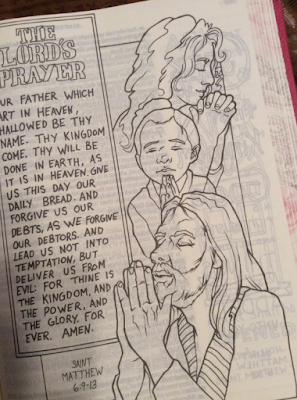 THE
LORD'S
PRAYER
UR FATHER WHICH
ART IN HEAVEN,
HALLOWED BE THY
NAME. THY KINGDOM
COME. THY WILL BE
DONE IN EARTH, AS
IT IS IN HEAVEN. GIVE
US THIS DAY OUR
DAILY BREAD. AND
FORGIVE US OUR
DEBTS, AS WE FORGIVE
OUR DEBTORS. AND
LEAD US NOT INTO
TEMPTATION, BUT
DELIVER US FROM
EVIL: FOR THINE IS
THE KINGDOM, AND
THE POWER, AND
THE GLORY, FOR
EVER. AMEN.
SAINT
MATTHEW
6:9-13